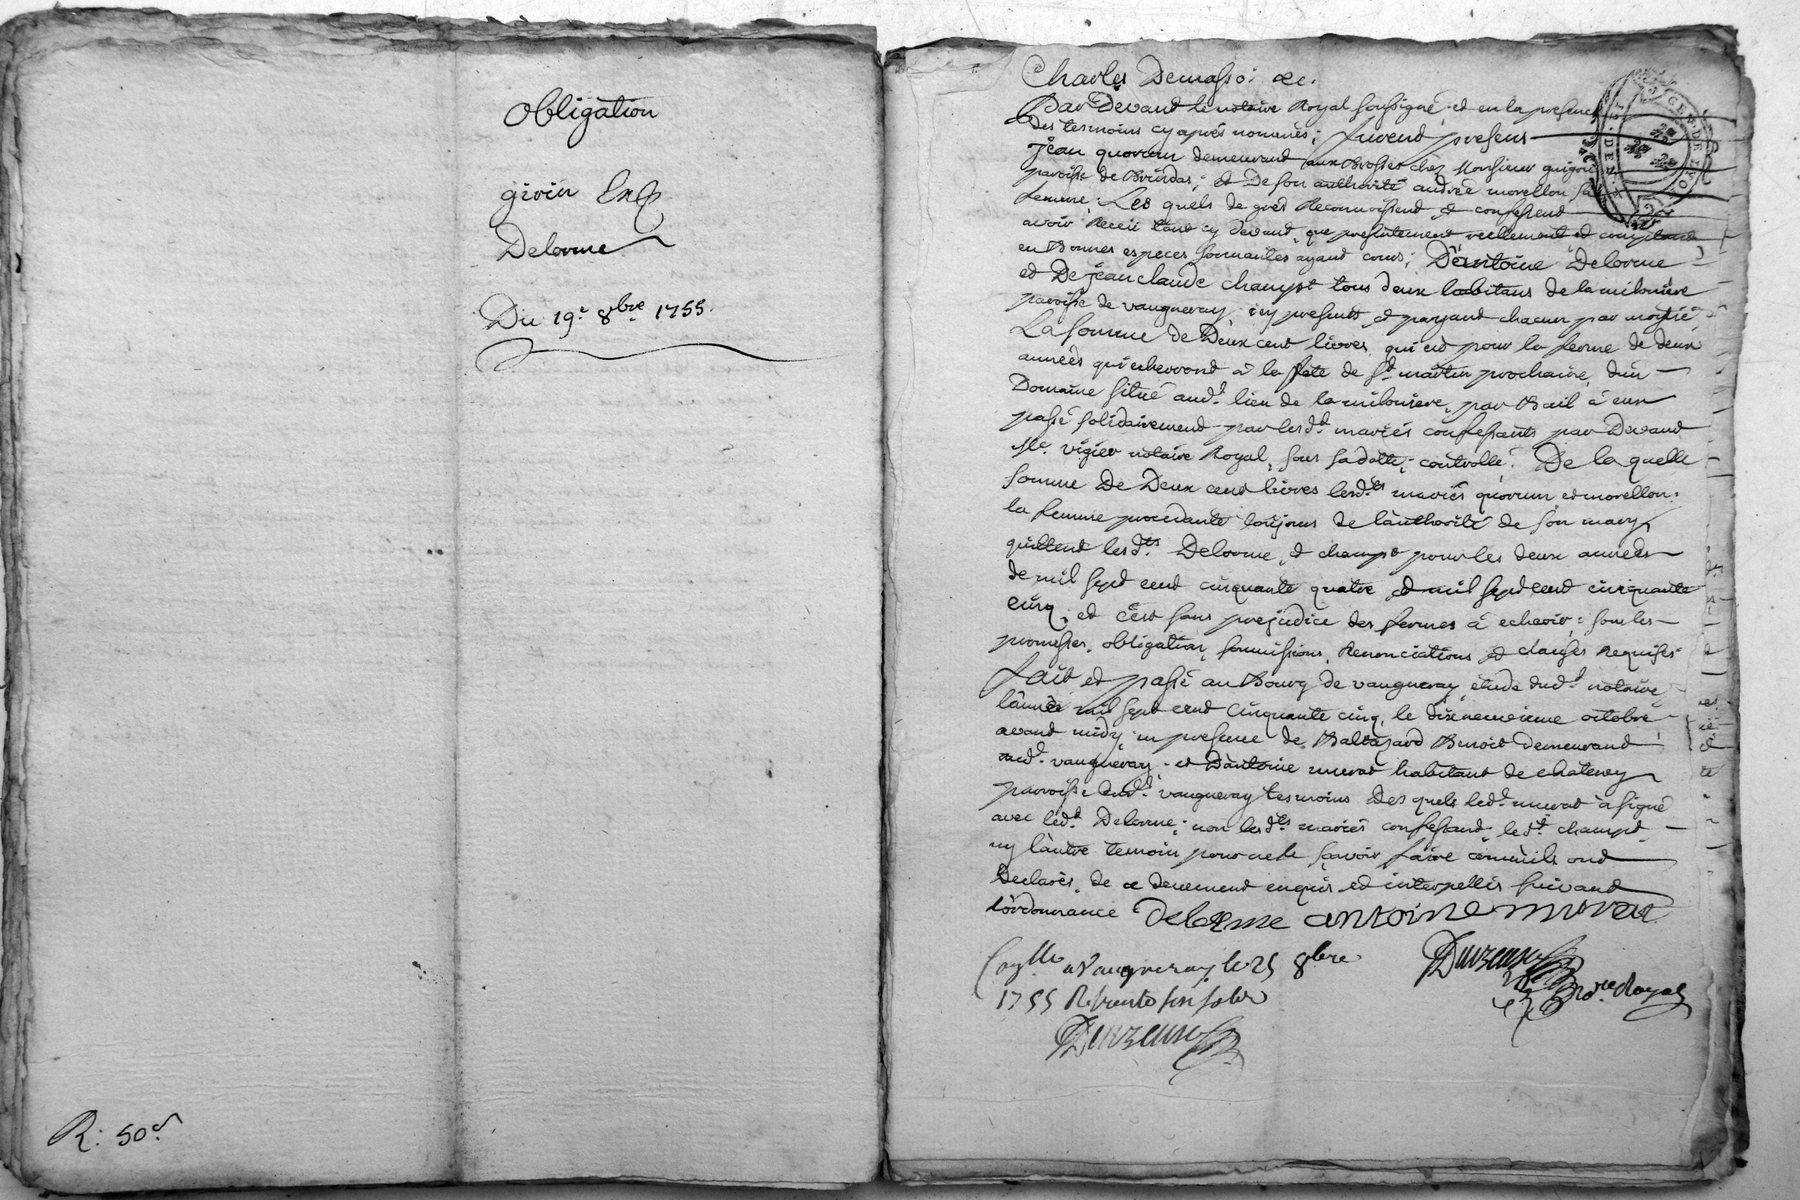 Obligation
girin
Delorme
Du 19.e 8bre 1755.
R: 50s
Charles Demasso: &c.
Par Devant le notaire Royal soussigné et en la presence
des tesmoins cy aprés nommés; furent presens
jean quorum demeurant aux Brosses chez Monsieur guigou
paroisse de Brindas; et De son authorité andreé morellon sa
femme; Les quels de gred Reconnoissent et confessent
avoir Receü tant cy devant que presentement reellement et comptant
en Bonnes especes sonnantes ayant cours; D'antoine Delorme
et De jean claude champt tous deux habitans de la miloniere
paroisse de vaugneray, icy presents et payant chacun par moytié
La somme de Deux cent livres qui est pour la ferme de deux
années qui echerront à la fete de St martin prochaine, d'un
Domaine situé aud.t lieu de la miloniere, par Bail à eux
passé solidairement par lesd.ts mariés confessants par Devant
Me. vigier notaire Royal, sous sa datte, controllé. De la quelle
somme De Deux cent livres lesd.ts mariés quorum et morellon,
la femme procedante toujours de l'authorité de son mary,
quittent lesd.ts Delorme, et champt pour les deux années
de mil sept cent cinquante quatre et mil sept cent cinquante
cinq, et c'est sans prejudice des fermes à echeoir; sous les
promesses, obligation, soumissions, Renonciations et clauses Requises
fait et passé au Bourg de vaugneray étude dud.t notaire
l'année mil sept cent cinquante cinq, le dixneuvieme octobre
avant midy en presence de Baltazard Benoit demeurant
aud.t vaugneray et D'antoine murat habitant de chateney
paroisse dud.t vaugneray tesmoins Des quels led.t murat à signé
avec led.t Delorme; non lesd.ts mariés confessant, led.t champt
ny l'autre temoin pour ne le sçavoir faire comm'ils ont
Declarés, de ce deuement enquis et interpellés suivant
l'ordonnance delorme antoine murat
Coñlle a Vaugneray le 25 8bre
1755 R
no.re Royal